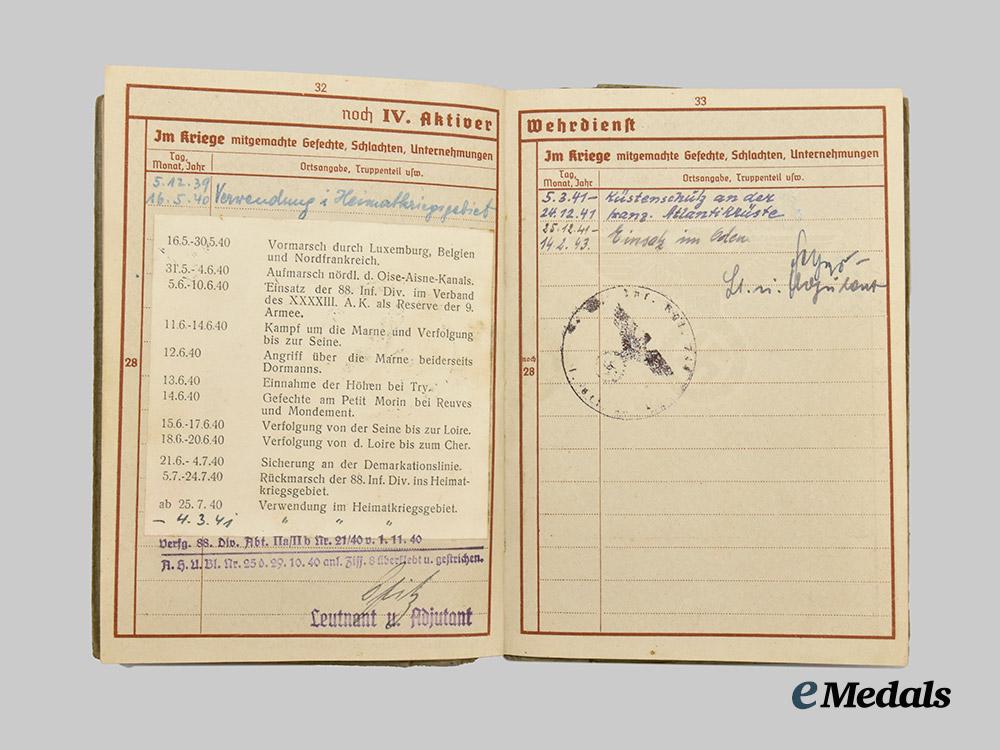 32
noch IV. Aktiver
Im Kriege mitgemachte Gefechte, Schlachten, Unternehmungen
Tag, Monat, Jahr
Ortsangabe, Truppenteil usw.
5.12.39
16.5.40 Verwendung i. Heimatkriegsgebiet
16.5.-30.5.40 Vormarsch durch Luxemburg, Belgien
und Nordfrankreich.
31.5.- 4.6.40 Aufmarsch nördl. d. Oise-Aisne-Kanals.
5.6.-10.6.40 Einsatz der 88. Inf. Div. im Verband
des XXXXIII. A. K. als Reserve der 9.
Armee.
11.6.-14.6.40 Kampf um die Marne und Verfolgung
bis zur Seine.
12.6.40 Angriff über die Marne beiderseits
Dormanns.
13.6.40 Einnahme der Höhen bei Try.
14.6.40 Gefechte am Petit Morin bei Reuves
und Mondement.
15.6.-17.6.40 Verfolgung von der Seine bis zur Loire.
18.6.-20.6.40 Verfolgung von d. Loire bis zum Cher.
21.6.- 4.7.40 Sicherung an der Demarkationslinie.
5.7.-24.7.40 Rückmarsch der 88. Inf. Div. ins Heimat-
kriegsgebiet.
ab 25.7.40 Verwendung im Heimatkriegsgebiet.
- 4.3.41 " " "
28
Verfg. 88. Div. Abt. IIa/IIb Nr. 21/40 v. 1.11.40
A.H.V.Bl. Nr. 25 d. 29.10.40 anl. Ziff. 8 überklebt u. gestrichen.
Leutnant u. Adjutant
33
Wehrdienst
Im Kriege mitgemachte Gefechte, Schlachten, Unternehmungen
Tag, Monat, Jahr
Ortsangabe, Truppenteil usw.
5.3.41- Küstenschutz an der
24.12.41 franz. Atlantikküste
25.12.41-
14.2.43. Einsatz im Osten
Lt. u. Adjutant
noch
28
eMedals